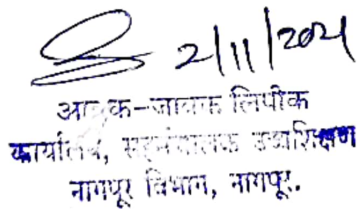 2/11/2021
आवक-जावक लिपीक
कार्यालय, सहसंचालक उच्चशिक्षण
नागपूर विभाग, नागपूर.